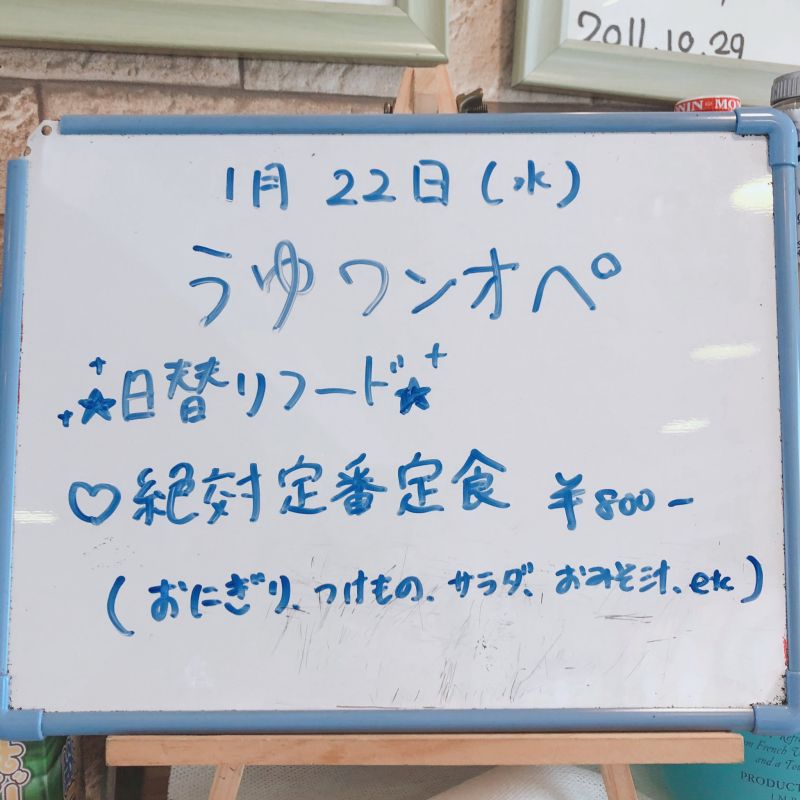 2011.10.29
NIN MO
1月 22日(水)
うゆワンオペ
★日替りフード★
♡絶対定番定食 ¥800-
(おにぎり、つけもの、サラダ、おみそ汁、etc)
and a To
PRODUCT